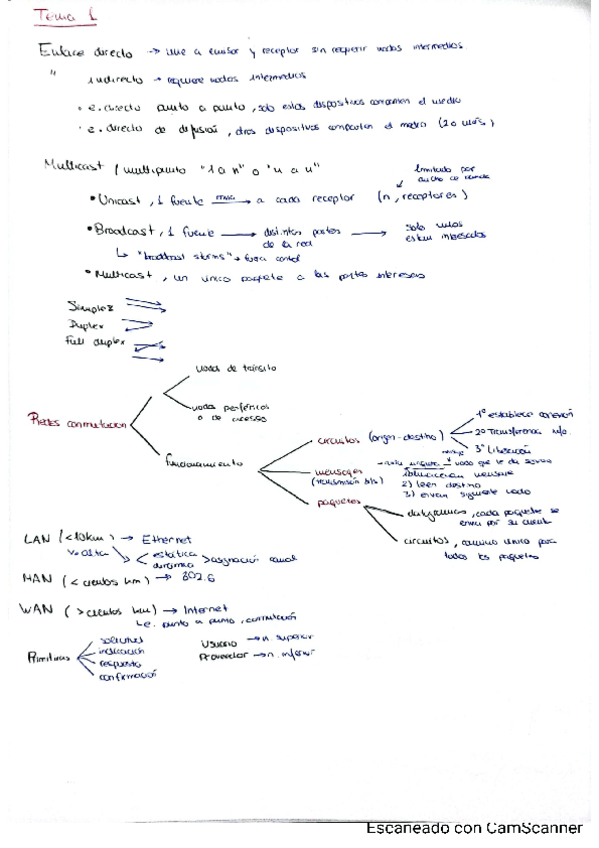 Tema 1
Enlace directo → une a emisor y receptor sin requerir nodos intermedios.
" indirecto → requiere nodos intermedios
• e. directo punto a punto, solo estos dispositivos comparten el medio
• e. directo de difusión, otros dispositivos comparten el medio (2 o más)
Multicast / multipunto "1 a n" o "n a n"
limitado por
ancho de banda
• Unicast, 1 fuente → a cada receptor (n, receptores)
• Broadcast, 1 fuente → distintos partes → solo unos
de la red estan interesados
↳ "broadcast storms" → fuera control
• Multicast, un único paquete a las partes interesas
Simplex
Duplex
Full duplex
nodos de tránsito
nodos periféricos
o de acceso
Redes conmutacion
funcionamiento
circuitos (origen-destino)
1º establece conexión
2º Transferencia info.
3º liberación
mensajes
(transmisión bits)
nodo que le da servicio
2) leen destino
3) envian siguiente nodo
paquetes
datagramas, cada paquete se
envia por su cuenta
circuitos, camino único para
todos los paquetes
LAN (<10km) → Ethernet
estática
dinámica > asignación canal
MAN (< cientos km) → 802.6
WAN (> cientos km) → Internet
L e. punto a punto, conmutación
Primitivas
solicitud
indicación
respuesta
confirmación
Usuario → n superior
Proveedor → n. inferior
Escaneado con CamScanner